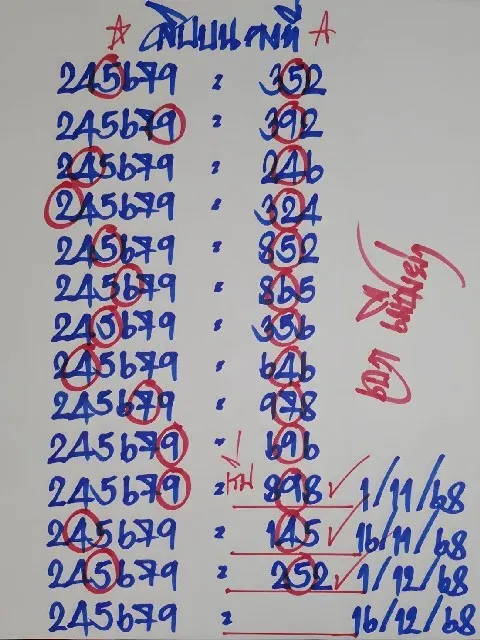 ☆ สิบบน คงที่ A
245679 = 352
245679 = 392
245679 = 246
245679 = 324
245679 = 852
245679 = 865
245679 = 356
245679 = 646
245679 = 978
245679 = 696
245679 = 898 ✓ 1/11/68
245679 = 145 ✓ 16/11/68
245679 = 252 ✓ 1/12/68
245679 = 16/12/68